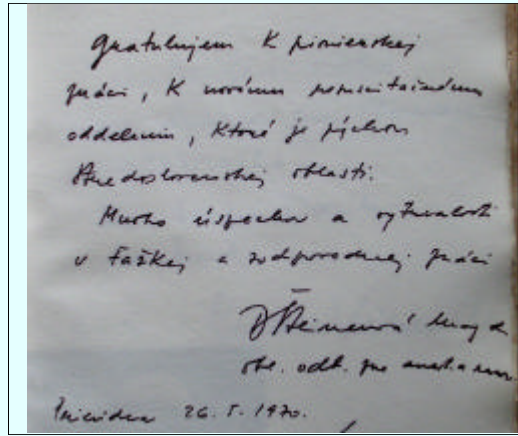 Gratulujem K pionierskej
práci, K novému resuscitačnému
oddeleniu, ktoré je pýchou
Stredoslovenskej oblasti.
Mnoho úspechov a vytrvalosti
v ťažkej a zodpovednej práci
odb. pre
26. 5. 1970.